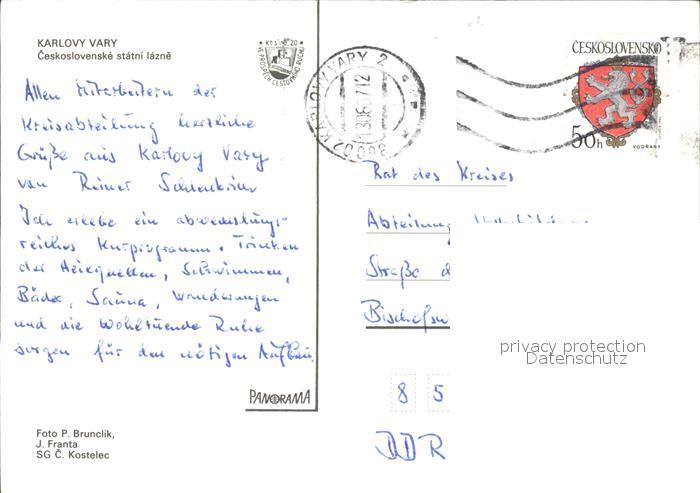 KARLOVY VARY
Československé státní lázně
Kčs 0,20
VE PROSPĚCH CESTOVNÍHO RUCHU
Allen Mitarbeitern der
Kreisabteilung herzliche
Grüße aus Karlovy Vary
von Reiner
Ich erlebe ein abwechslungs-
reiches Kurprogramm. Trinken
der Heilquellen, Schwimmen,
Bäder, Sauna, Wanderungen
und die wohltuende Ruhe
sorgen für den nötigen Aufbau.
PANORAMA
Foto P. Brunclík,
J. Franta
SG Č. Kostelec
KARLOVY VARY 2
ČESKOSLOVENSKO
50h
VODŇANY
Rat des Kreises
Abteilung
Straße d
Bischofsw
8 5
DDR
privacy protection
Datenschutz